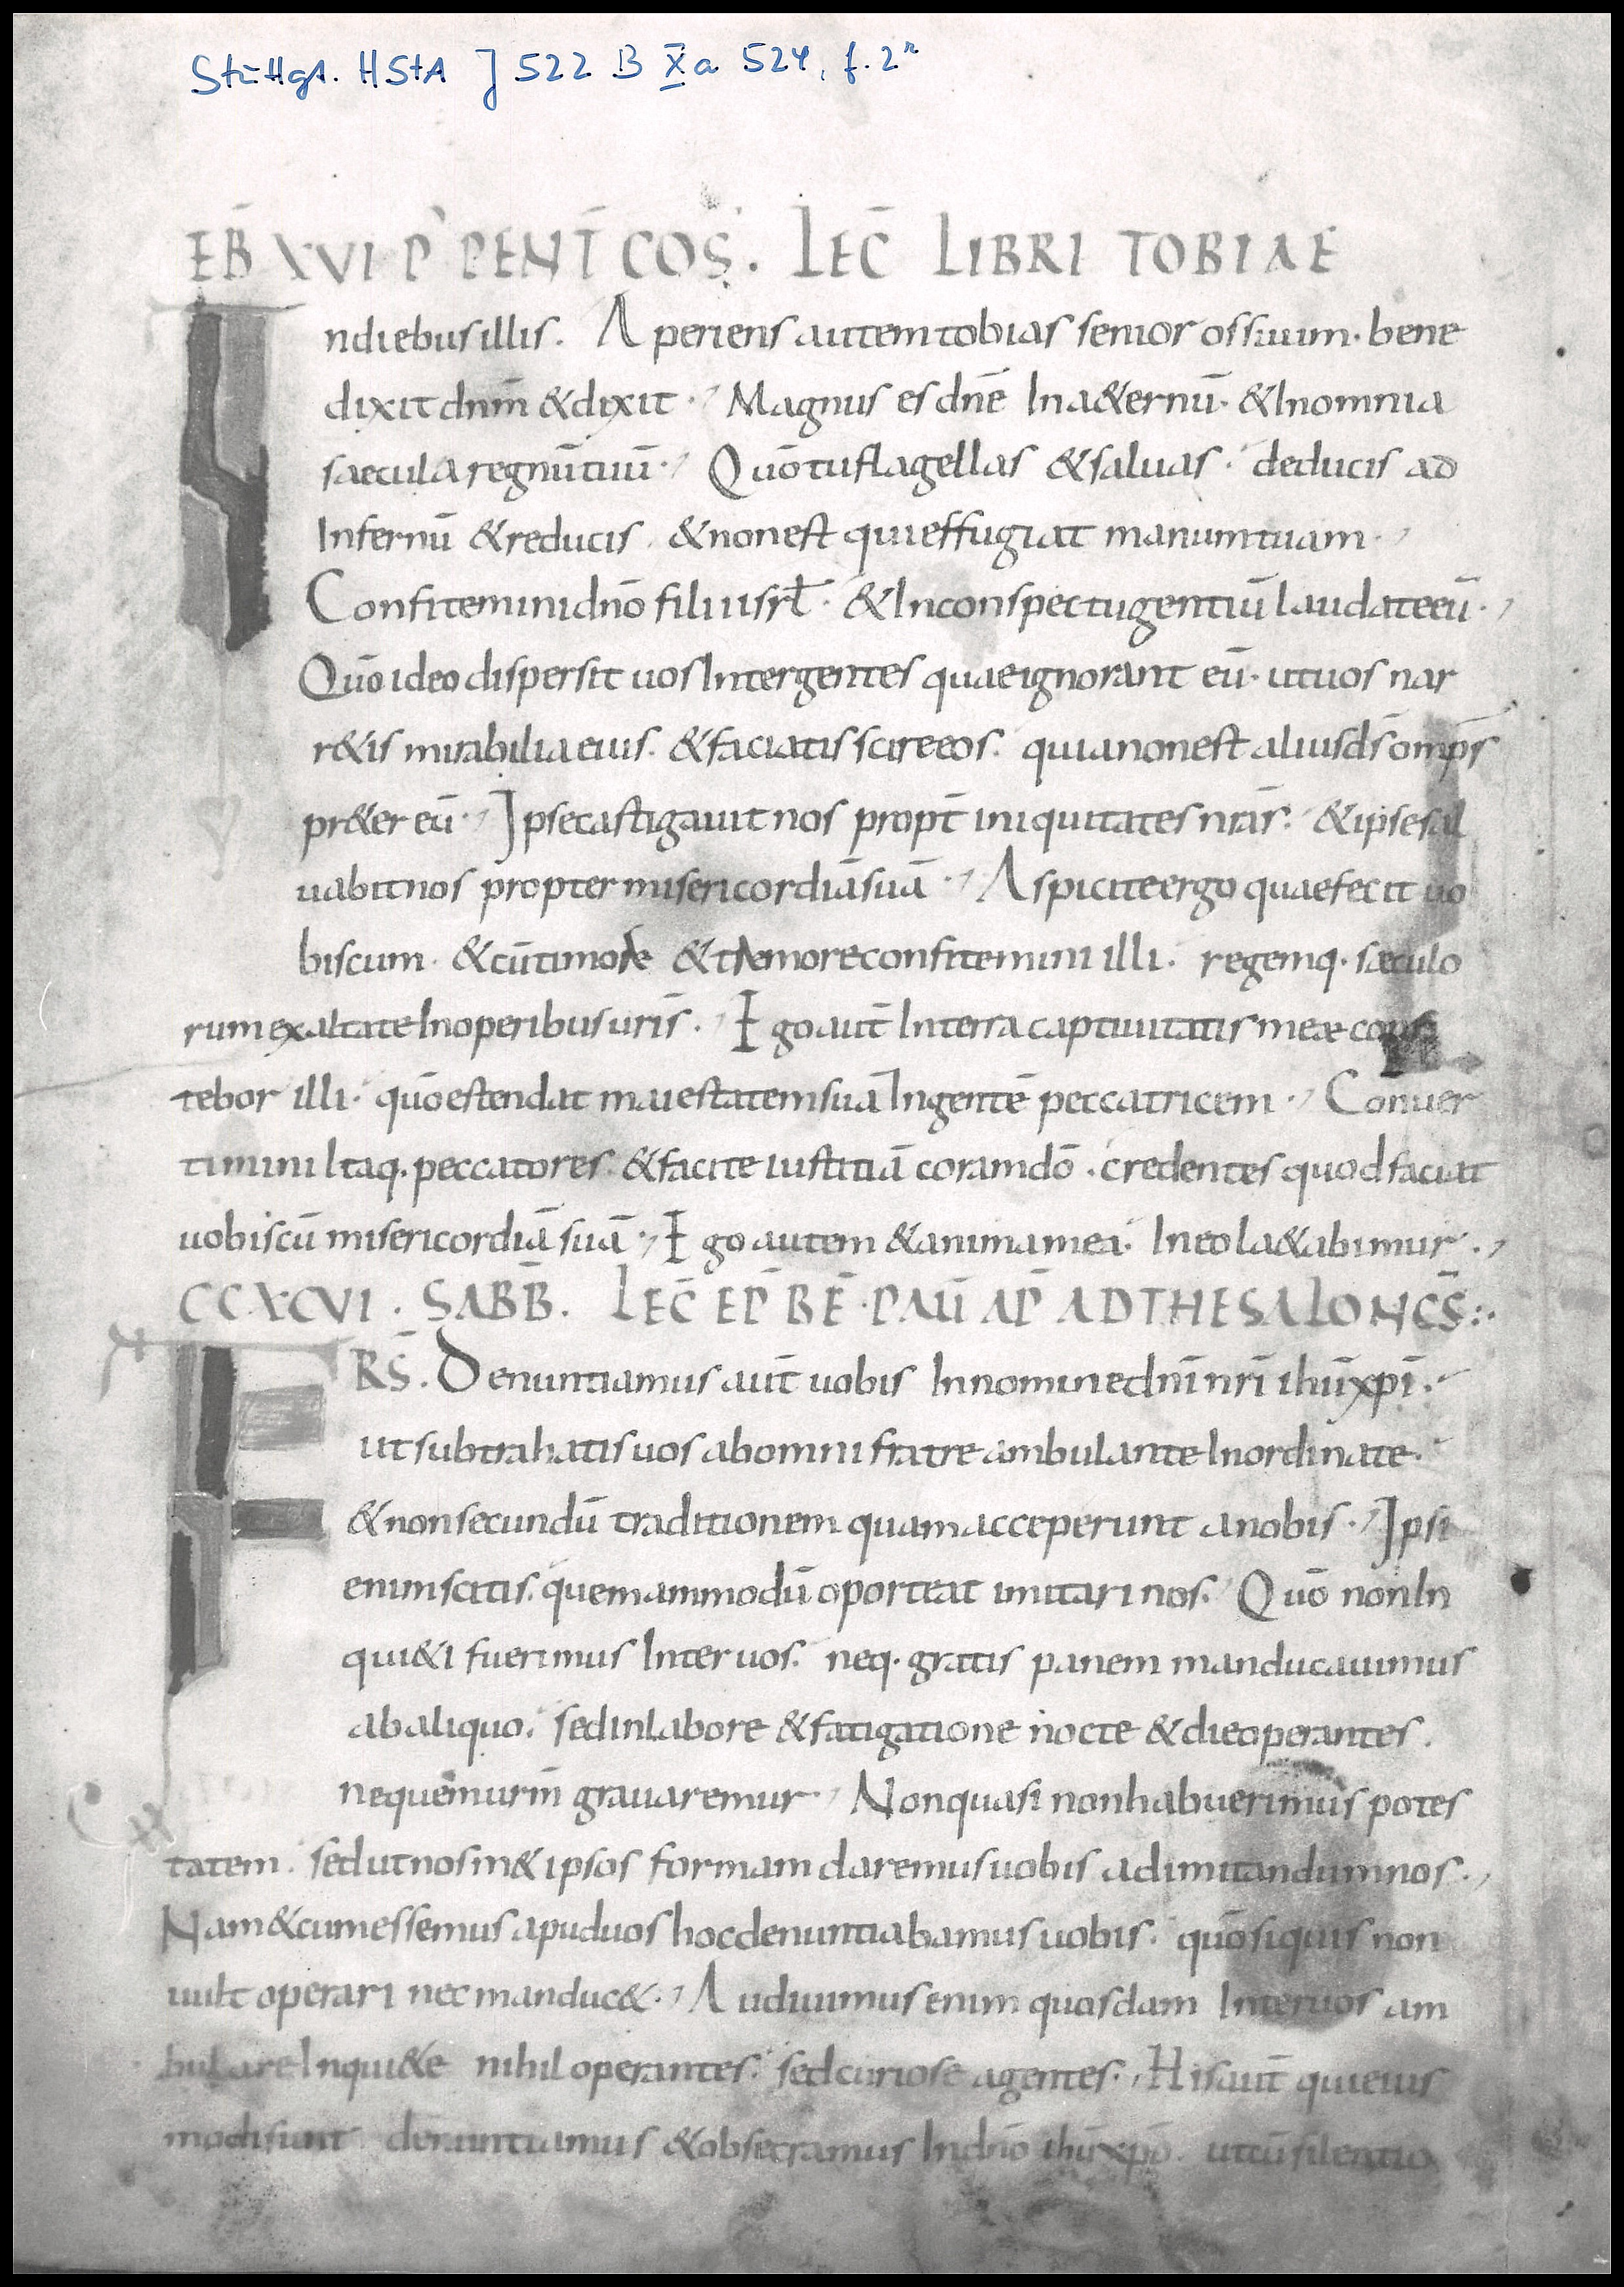 Stuttgt. HStA J 522 B Xa 524, f. 2r
EB̄ XVI P̄ PENT̄COS̄. LEC̄ LIBRI TOBIAE
Indiebusillis. Aperiens autemtobias senior ossuum· bene
dixit dnm̄ &dixit· Magnus es dnē Ina&ernū· &Inomnia
saecularegnūtuū· Quōtuflagellas &saluas· deducis ad
Infernū &reducis· &nonest quieffugiat manumtuam·
Confiteminidnō filiiisrl̄· &Inconspectugentiū laudateeū·
Quōideo dispersit uosIntergentes quaeignorant eū· utuos nar
r&is mirabiliaeius· &faciatis scireeos· quianonest aliusds̄omp̄s
pr&er eū· Ipsecastigauit nos propt̄ iniquitates nrās· &ipsesal
uabitnos propter misericordiāsuā· Aspiciteergo quaefecit uo
biscum· &cūtimore &tremoreconfitemini illi· regemq· sæculo
rumexaltateInoperibusuris̄· Ego aut̄ Interra captiuitatis meæ confi
tebor illi· quōostendat maiestatemsuā Ingentē peccatricem· Conuer
timini Itaq· peccatores· &facite iustitiā coramdō· credentes quodfaciat
uobiscū misericordiā suā· Ego autem &animamea· Ineola&abimur·
CCXCVI. SABB̄. LEC̄ EP̄ BĒ·PAŪ AP̄ ADTHESALONCS̄:·
FRS̄. Denuntiamus aut̄ uobis Innominednī nrī ihūxpī·
utsubtrahatisuos abomni fratre ambulante Inordinate·
&nonsecundū traditionem quamacceperunt anobis· Ipsi
enimscitis· quemammodū oporteat imitari nos· Quō nonIn
qui&i fuerimus Interuos· neq· gratis panem manducauimus
abaliquo· sedinlabore &fatigatione nocte &dieoperantes·
nequemurm̄ grauaremur· Nonquasi nonhabuerimus potes
tatem· sedutnosm&ipsos formam daremusuobis adimitandumnos·
Nam&cumessemus apuduos hocdenuntiabamusuobis· quōsiquis non
uult operari nec manduc&· Audiuimus enim quosdam Interuos am
bulareInqui&e nihil operantes· sedcuriose agentes· Hisaut̄ quieius
modisunt denuntiamus &obsecramus Indnō ihūxpō· utcūsilentio